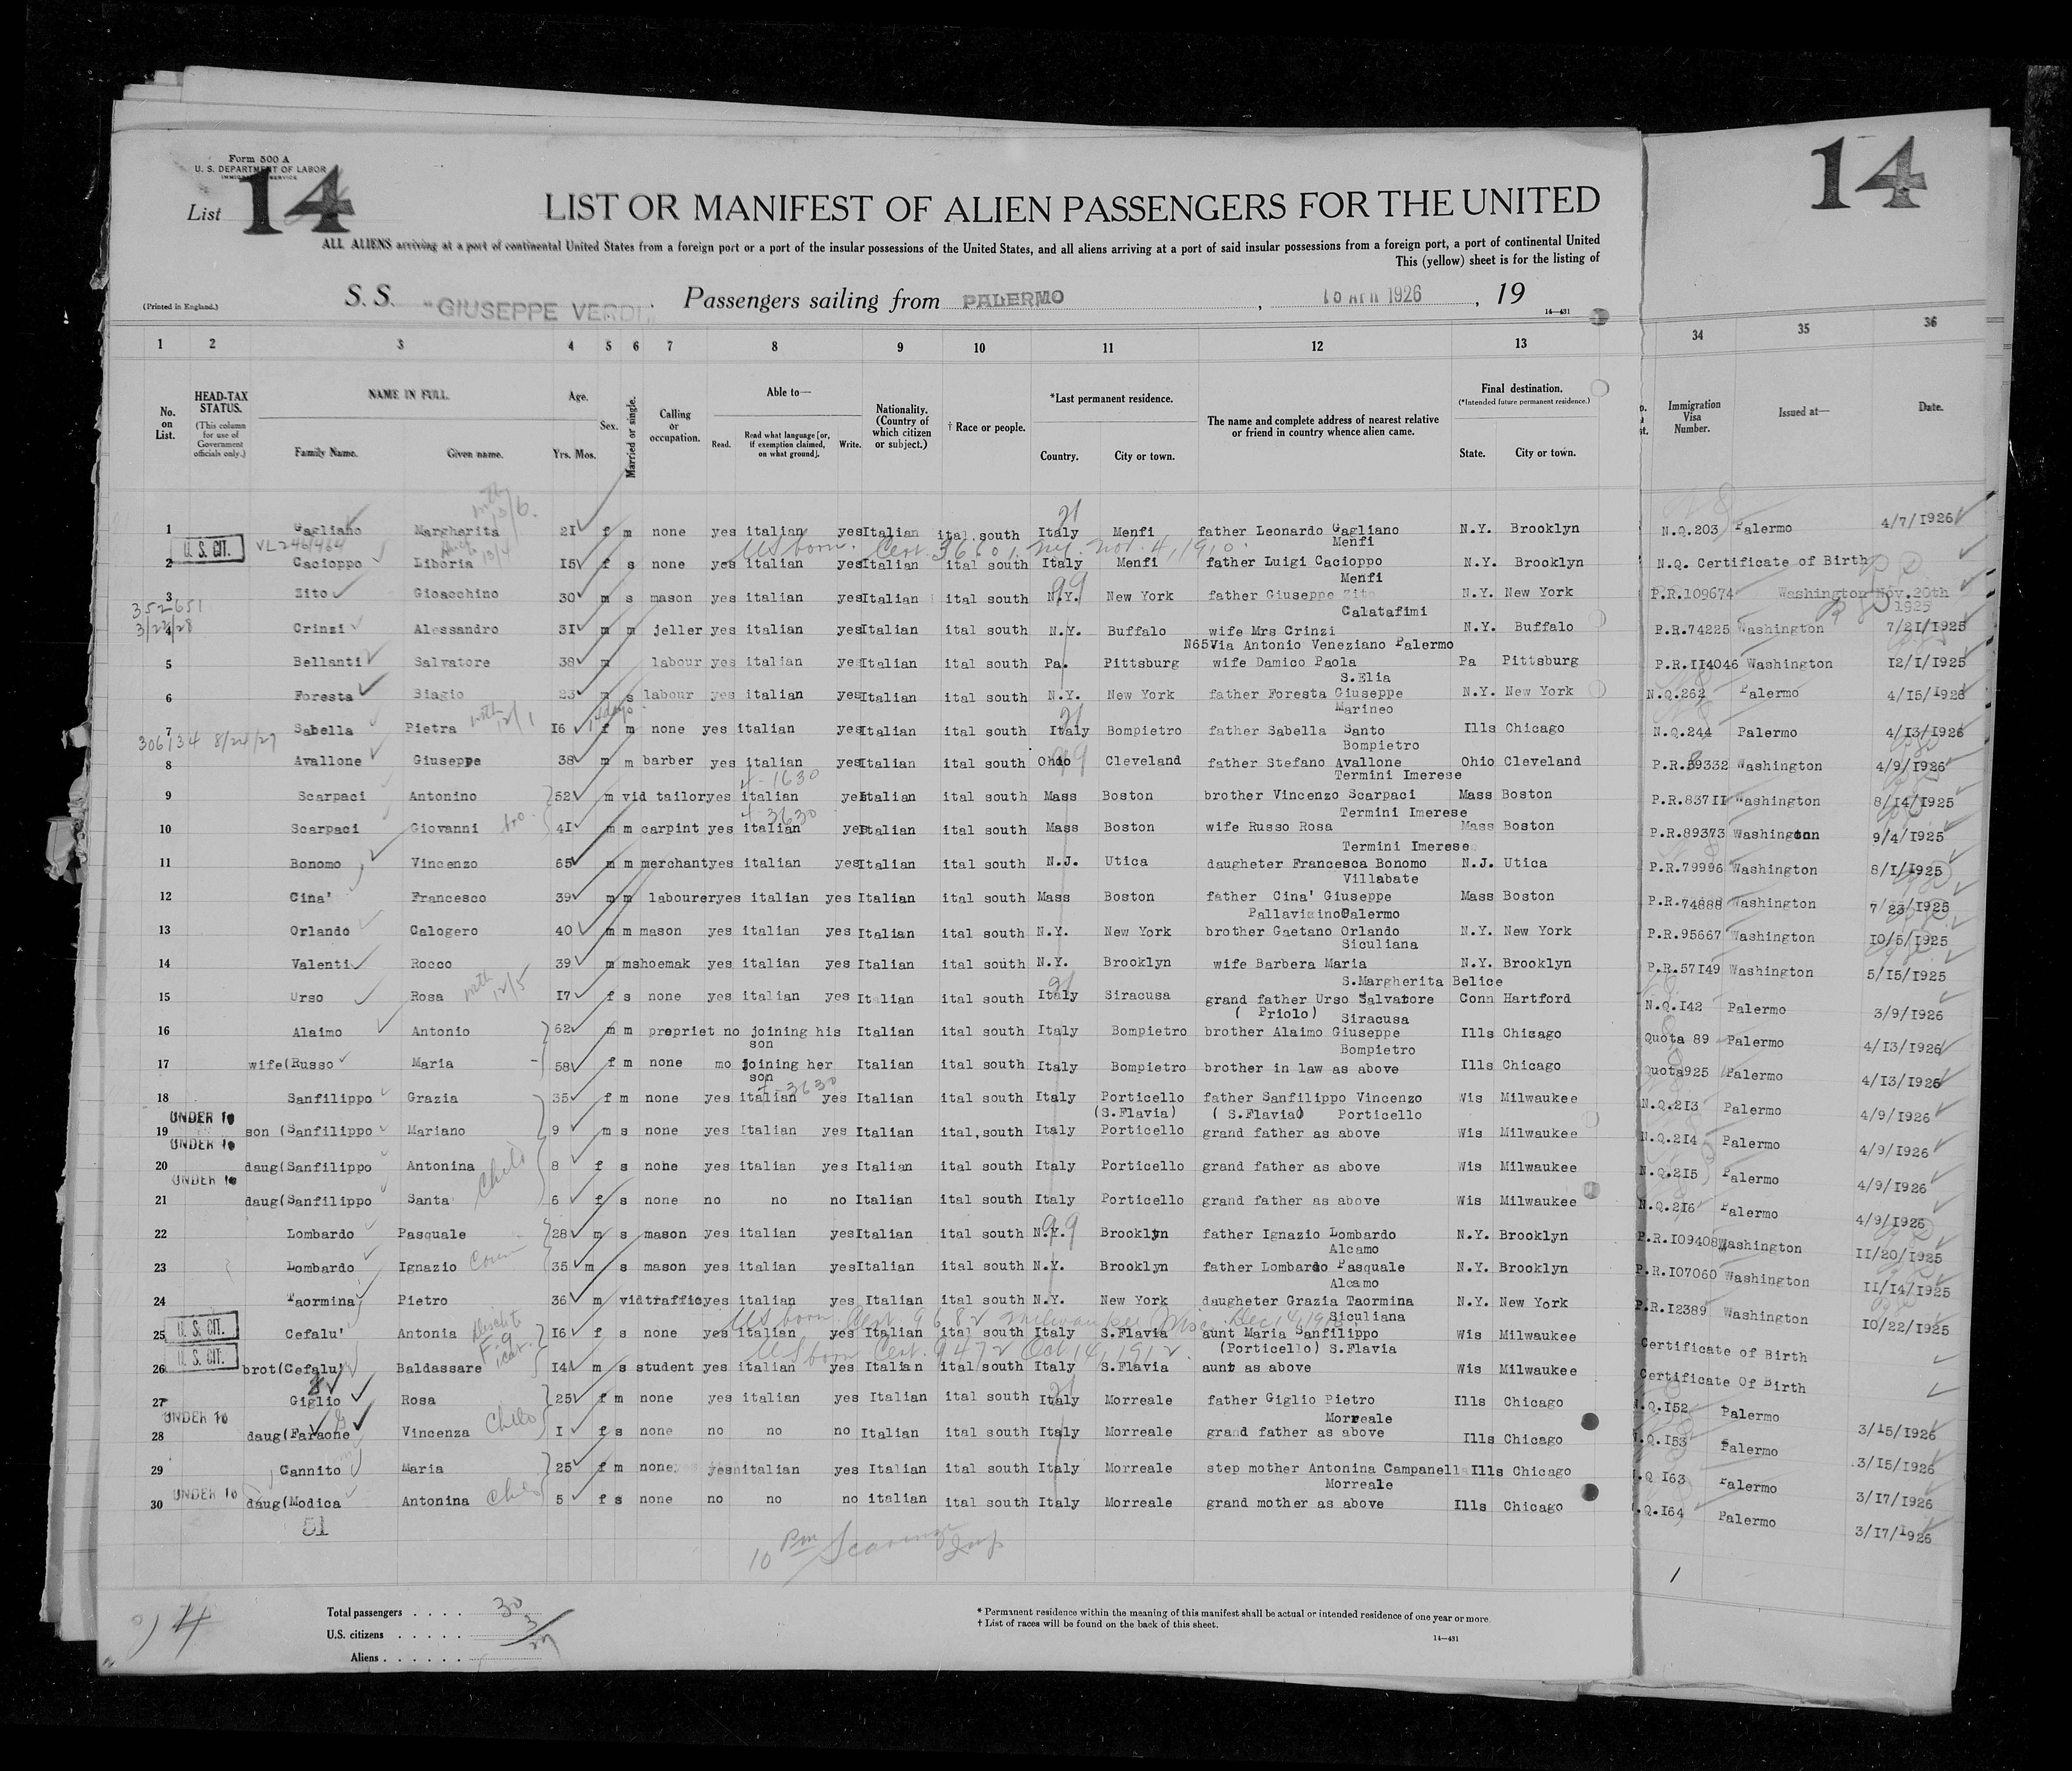 Form 500 A
U. S. DEPARTMENT OF LABOR
IMMIGRATION SERVICE
List 14
14
LIST OR MANIFEST OF ALIEN PASSENGERS FOR THE UNITED
ALL ALIENS arriving at a port of continental United States from a foreign port or a port of the insular possessions of the United States, and all aliens arriving at a port of said insular possessions from a foreign port, a port of continental United
This (yellow) sheet is for the listing of
(Printed in England.)
S. S. "GIUSEPPE VERDI" Passengers sailing from PALERMO, 15 APR 1926, 19
14—431
1 2 3 4 5 6 7 8 9 10 11 12 13 34 35 36
No. on List.
HEAD-TAX STATUS.
(This column for use of Government officials only.)
NAME IN FULL.
Family Name. Given name.
Age.
Yrs. Mos.
Sex.
Married or single.
Calling or occupation.
Able to—
Read. Read what language [or, if exemption claimed, on what ground]. Write.
Nationality. (Country of which citizen or subject.)
† Race or people.
*Last permanent residence.
Country. City or town.
The name and complete address of nearest relative or friend in country whence alien came.
Final destination.
(*Intended future permanent residence.)
State. City or town.
Immigration Visa Number.
Issued at—
Date.
with 13/6.
21
1 Gagliano Margherita 21 f m none yes italian yes Italian ital.south Italy Menfi father Leonardo Gagliano N.Y. Brooklyn N.Q.203 Palermo 4/7/1926
Menfi
U. S. CIT. VL246/464 13/4 US born. Cert. 36601. N.Y. Nov. 4, 1910.
2 Cacioppo Liboria 15 f s none yes italian yes Italian ital south Italy Menfi father Luigi Cacioppo N.Y. Brooklyn N.Q. Certificate of Birth
Menfi
99
3 Zito Gioacchino 30 m s mason yes italian yes Italian ital south N.Y. New York father Giuseppe Zito N.Y. New York P.R.109674 Washington Nov.20th 1925
352651
Calatafimi
3/27/28
4 Crinzi Alessandro 31 m m jeller yes italian yes Italian ital south N.Y. Buffalo wife Mrs Crinzi N.Y. Buffalo P.R.74225 Washington 7/21/1925
N65Via Antonio Veneziano Palermo
5 Bellanti Salvatore 38 m labour yes italian yes Italian ital south Pa. Pittsburg wife Damico Paola Pa Pittsburg P.R.114046 Washington 12/1/1925
S.Elia
6 Foresta Biagio 23 m s labour yes italian yes Italian ital south N.Y. New York father Foresta Giuseppe N.Y. New York N.Q.262 Palermo 4/15/1926
Marineo
with 12/1 21
7 Sabella Pietra 16 f m none yes italian yes Italian ital south Italy Bompietro father Sabella Santo Ills Chicago N.Q.244 Palermo 4/13/1926
306134 8/24/27
Bompietro
99
8 Avallone Giuseppe 38 m m barber yes italian yes Italian ital south Ohio Cleveland father Stefano Avallone Ohio Cleveland P.R.89332 Washington 4/9/1926
Termini Imerese
4-1630
9 Scarpaci Antonino 52 m vid tailor yes italian yes Italian ital south Mass Boston brother Vincenzo Scarpaci Mass Boston P.R.83711 Washington 8/14/1925
Termini Imerese
4-3630
10 Scarpaci Giovanni bro. 41 m m carpint yes italian yes Italian ital south Mass Boston wife Russo Rosa Mass Boston P.R.89373 Washington 9/4/1925
Termini Imerese
11 Bonomo Vincenzo 65 m m merchant yes italian yes Italian ital south N.J. Utica daugheter Francesca Bonomo N.J. Utica P.R.79996 Washington 8/1/1925
Villabate
12 Cina' Francesco 39 m m labourer yes italian yes Italian ital south Mass Boston father Cina' Giuseppe Mass Boston P.R.74888 Washington 7/23/1925
Pallavicino Palermo
13 Orlando Calogero 40 m m mason yes italian yes Italian ital south N.Y. New York brother Gaetano Orlando N.Y. New York P.R.95667 Washington 10/5/1925
Siculiana
14 Valenti Rocco 39 m m shoemak yes italian yes Italian ital south N.Y. Brooklyn wife Barbera Maria N.Y. Brooklyn P.R.57149 Washington 5/15/1925
S.Margherita Belice
with 12/5
15 Urso Rosa 17 f s none yes italian yes Italian ital south Italy Siracusa grand father Urso Salvatore Conn Hartford N.Q.142 Palermo 3/9/1926
( Priolo) Siracusa
16 Alaimo Antonio 62 m m propriet no joining his Italian ital south Italy Bompietro brother Alaimo Giuseppe Ills Chicago Quota 89 Palermo 4/13/1926
son Bompietro
17 wife(Russo Maria 58 f m none mo joining her Italian ital south Italy Bompietro brother in law as above Ills Chicago Quota925 Palermo 4/13/1926
son
18 Sanfilippo Grazia 35 f m none yes italian yes Italian ital south Italy Porticello father Sanfilippo Vincenzo Wis Milwaukee N.Q.213 Palermo 4/9/1926
UNDER 16 (S.Flavia) ( S.Flavia) Porticello
19 son (Sanfilippo Mariano 9 m s none yes Italian yes Italian ital,south Italy Porticello grand father as above Wis Milwaukee N.Q.214 Palermo 4/9/1926
UNDER 16
20 daug(Sanfilippo Antonina 8 f s none yes italian yes Italian ital south Italy Porticello grand father as above Wis Milwaukee N.Q.215 Palermo 4/9/1926
UNDER 16 Child
21 daug(Sanfilippo Santa 6 f s none no no no Italian ital south Italy Porticello grand father as above Wis Milwaukee N.Q.216 Palermo 4/9/1926
99
22 Lombardo Pasquale 28 m s mason yes italian yes Italian ital south N.Y. Brooklyn father Ignazio Lombardo N.Y. Brooklyn P.R.109408 Washington 11/20/1925
Alcamo
23 Lombardo Ignazio 35 m s mason yes italian yes Italian ital south N.Y. Brooklyn father Lombardo Pasquale N.Y. Brooklyn P.R.107060 Washington 11/14/1925
Alcamo
24 Taormina Pietro 36 m vid traffic yes italian yes Italian ital south N.Y. New York daugheter Grazia Taormina N.Y. New York P.R.12389 Washington 10/22/1925
Siculiana
U. S. CIT. US born Cert. 9682 Milwaukee Wisc. Dec 14, 19
25 Cefalu' Antonia 16 f s none yes italian yes Italian ital south Italy S.Flavia aunt Maria Sanfilippo Wis Milwaukee Certificate of Birth
(Porticello) S.Flavia
U. S. CIT. US born Cert. 9472 Oct 14, 1912.
26 brot(Cefalu' Baldassare 14 m s student yes italian yes Italian ital south Italy S.Flavia aunt as above Wis Milwaukee Certificate Of Birth
27 Giglio Rosa 25 f m none yes italian yes Italian ital south Italy Morreale father Giglio Pietro Ills Chicago N.Q.152 Palermo 3/15/1926
UNDER 16 Child Morreale
28 daug(Faraone Vincenza 1 f s none no no no Italian ital south Italy Morreale grand father as above Ills Chicago N.Q.153 Palermo 3/15/1926
29 Cannito Maria 25 f m none yes italian yes Italian ital south Italy Morreale step mother Antonina Campanella Ills Chicago N.Q 163 Palermo 3/17/1926
UNDER 16 Child Morreale
30 daug(Modica Antonina 5 f s none no no no italian ital south Italy Morreale grand mother as above Ills Chicago N.Q.164 Palermo 3/17/1926
51
10 Pm
Insp
Total passengers . . . . 30
U.S. citizens . . . . . 3
Aliens . . . . . . 27
* Permanent residence within the meaning of this manifest shall be actual or intended residence of one year or more.
† List of races will be found on the back of this sheet.
14—431